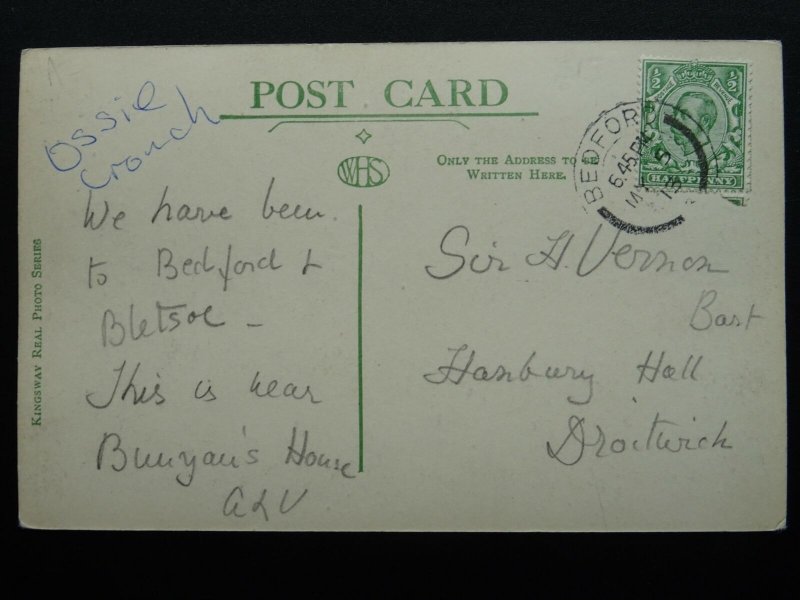 POST CARD
Ossie
Crouch
WHS
ONLY THE ADDRESS TO BE
WRITTEN HERE.
KINGSWAY REAL PHOTO SERIES
We have been
to Bedford &
Bletsoe –
This is near
Bunyan's House
ALV
½ ½
HALFPENNY
BEDFORD
6.45 PM
MY
13
Sir H. Vernon
Bart
Hanbury Hall
Droitwich